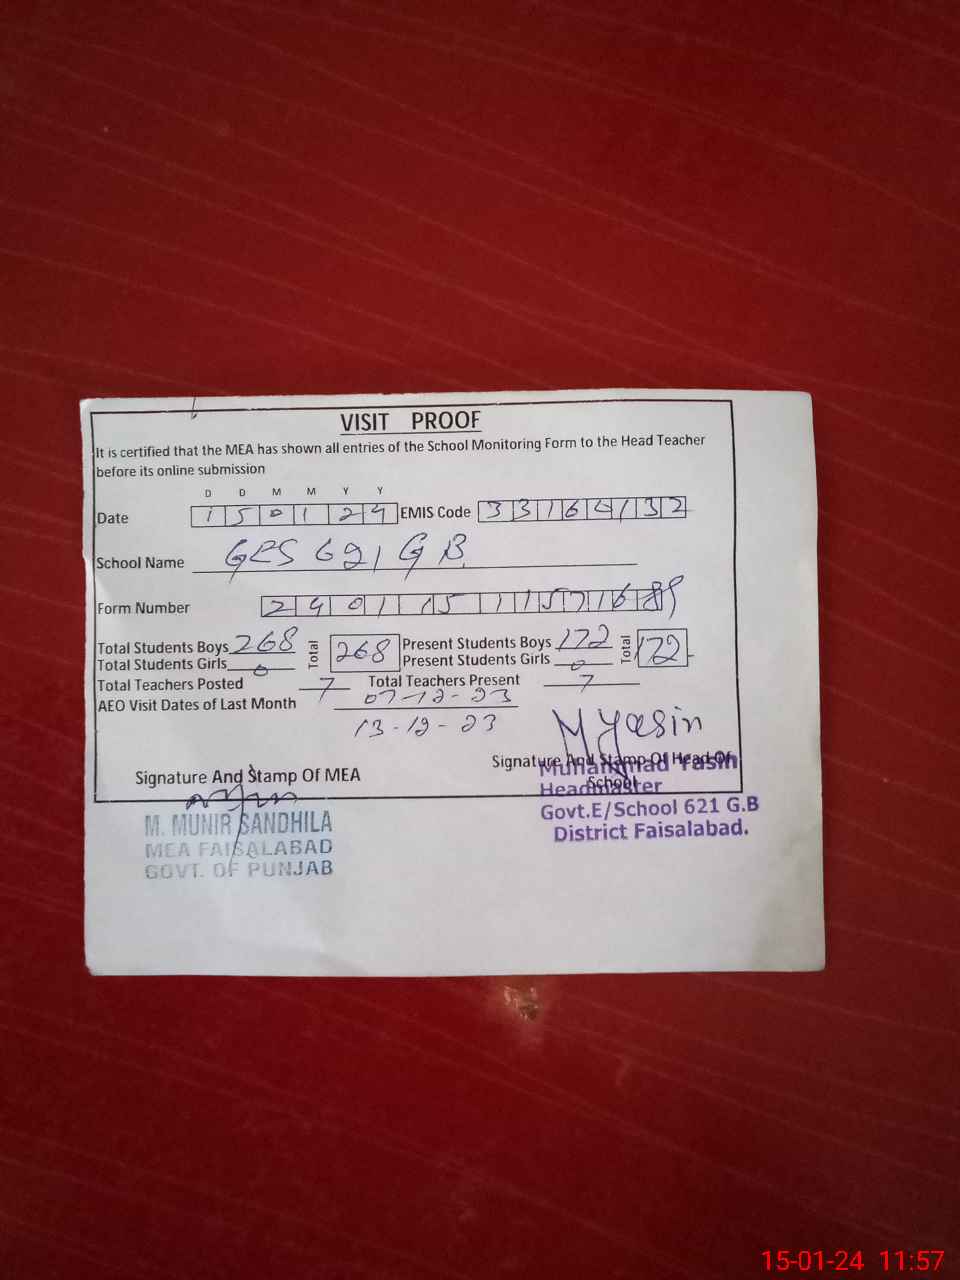 VISIT PROOF
It is certified that the MEA has shown all entries of the School Monitoring Form to the Head Teacher
before its online submission
D D M M Y Y
Date 15 01 24 EMIS Code 33160132
School Name GES 621 GB
Form Number
Total Students Boys 268 Total 268 Present Students Boys 172 Total 172
Total Students Girls 0 Present Students Girls 0
Total Teachers Posted 7 Total Teachers Present 7
AEO Visit Dates of Last Month 07-12-23
13-12-23
M Yasin
Signature And Stamp Of Head Of
School
Signature And Stamp Of MEA
Muhammad Yasin
Headmaster
Govt.E/School 621 G.B
District Faisalabad.
M. MUNIR SANDHILA
MEA FAISALABAD
GOVT. OF PUNJAB
15-01-24 11:57